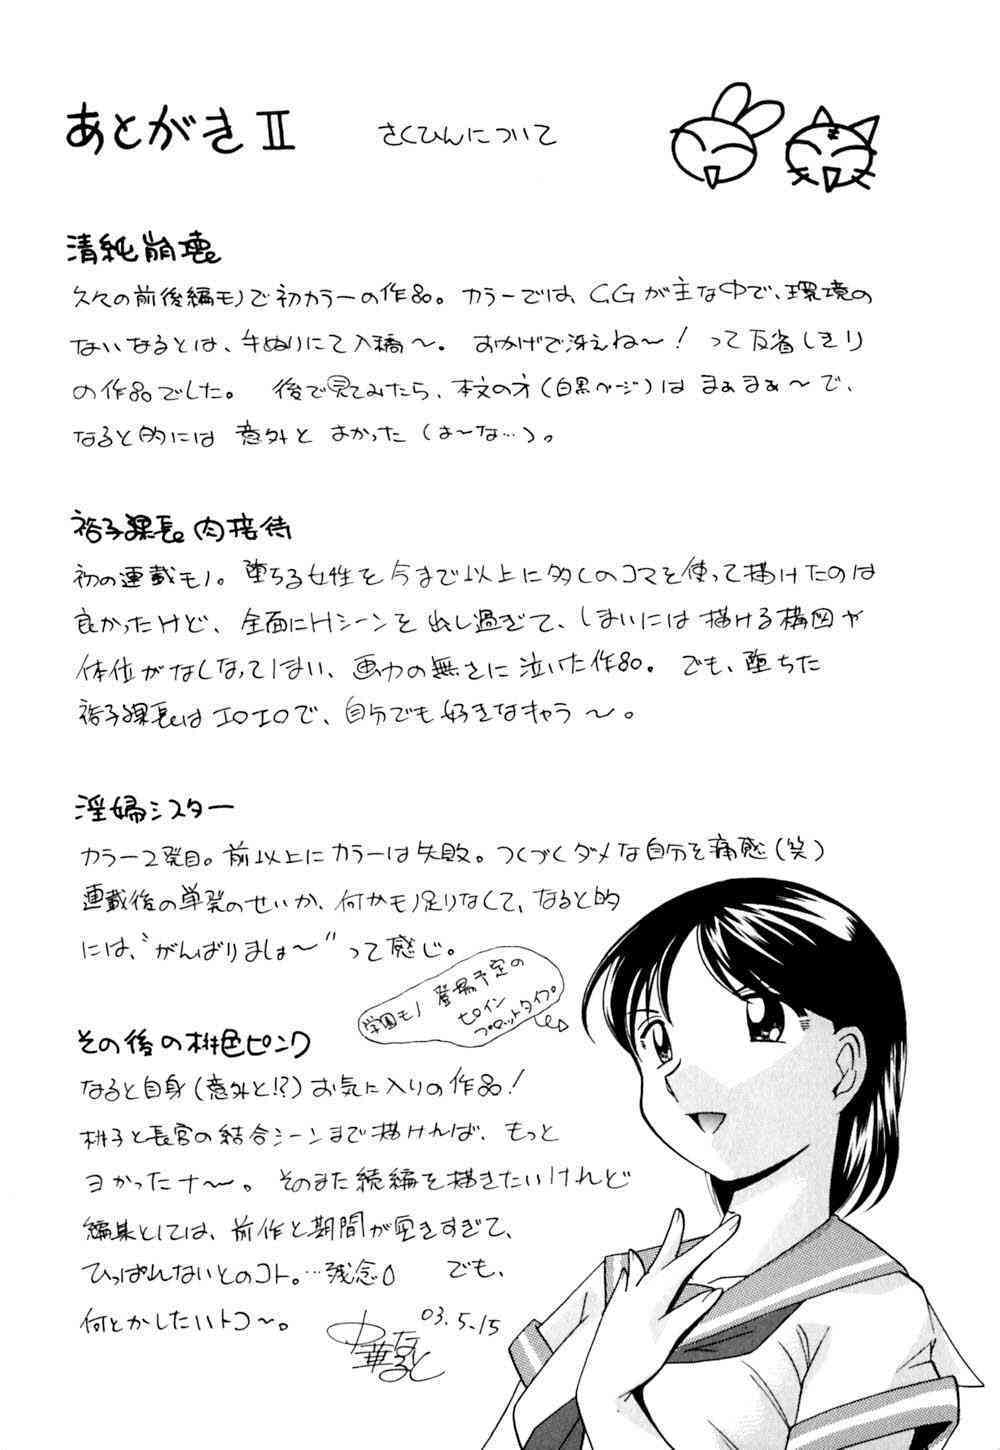 あとがきⅡ
さくひんについて
清純崩壊。
久々の前後編モノで初カラーの作品。カラーでは、CGが主な中で、環境の
ないなるとは、手ぬりにて入稿〜。おかげで冴えね〜！って反省しきり
の作品でした。後で見てみたら、本文の方（白黒ページ）はまぁまぁ〜で、
なると的には意外とよかった（よ〜な…）。
裕子課長。肉接待
初の連載モノ。堕ちる女性を今まで以上に多くのコマを使って描けたのは
良かったけど、全面にHシーンを出し過ぎて、しまいには描ける構図や
体位がなくなってしまい、画力の無さに泣いた作品。でも、堕ちた
裕子課長はエロエロで、自分でも好きなキャラ〜。
淫婦シスター
カラー2発目。前以上にカラーは失敗。つくづくダメな自分を痛感（笑）
連載後の単発のせいか、何かモノ足りなくて、なると的
には、“がんばりましょ〜”って感じ。
学園モノ登場予定の
ヒロイン
プロットタイプ。
その後の桃色ピンク
なると自身（意外と！？）お気に入りの作品！
桃子と長官の結合シーンまで描ければ、もっと
ヨかったナ〜。そのまた続編を描きたいけれど
編集としては、前作と期間が空きすぎて、
ひっぱれないとのコト。…残念。でも、
何とかしたいトコ〜。
03.5.15
中華なると